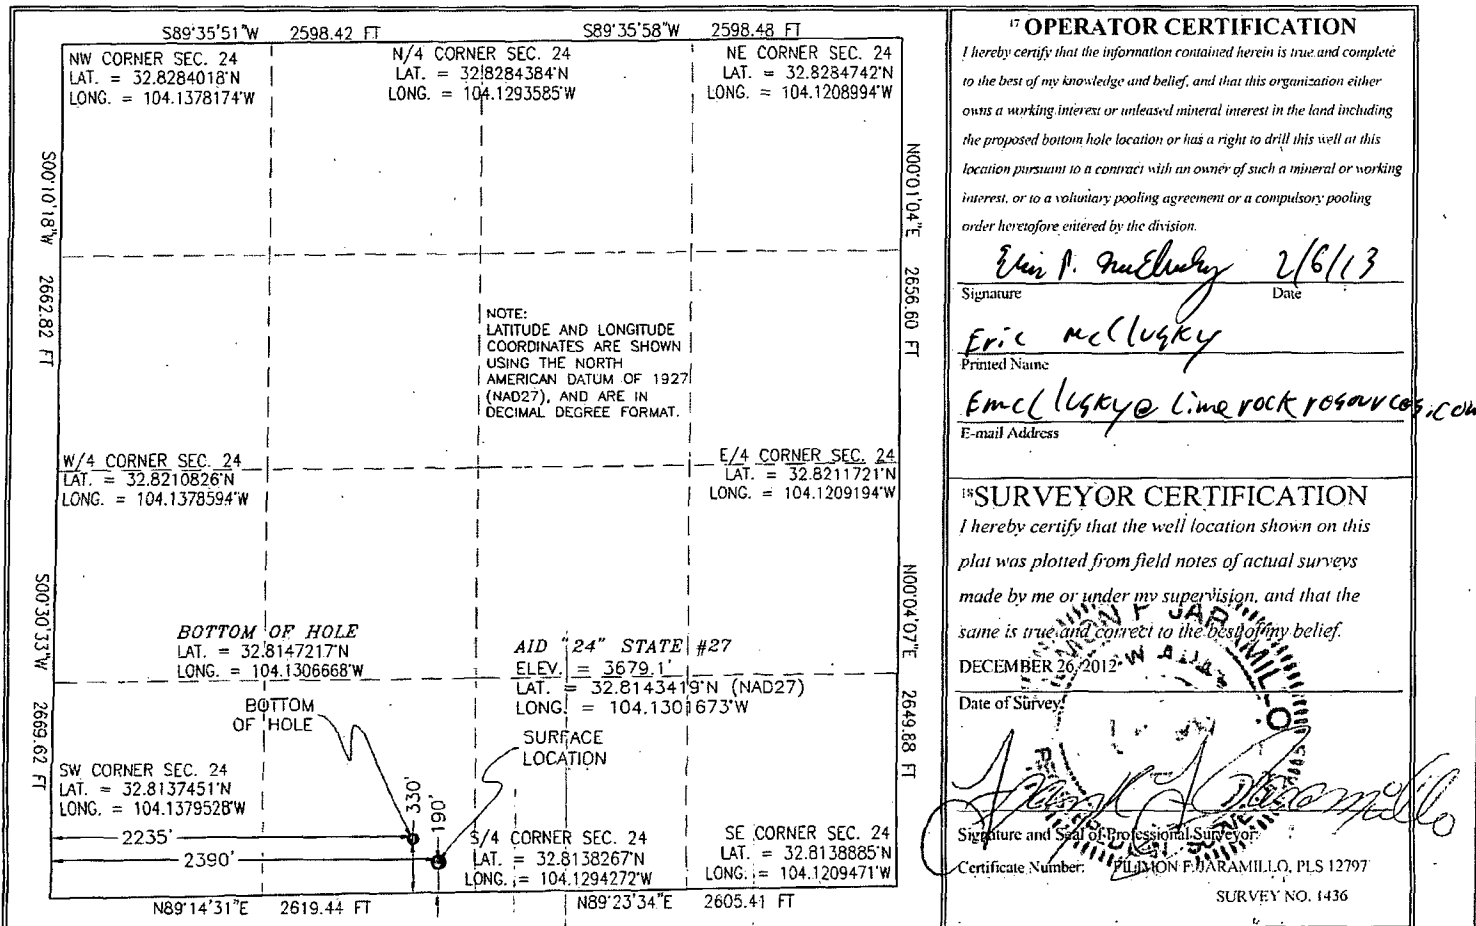 S89°35'51"W 2598.42 FT
S89°35'58"W 2598.48 FT
NW CORNER SEC. 24
LAT. = 32.8284018°N
LONG. = 104.1378174°W
N/4 CORNER SEC. 24
LAT. = 32.8284384°N
LONG. = 104.1293585°W
NE CORNER SEC. 24
LAT. = 32.8284742°N
LONG. = 104.1208994°W
S00°10'18"W 2662.82 FT
N00°01'04"E 2656.60 FT
NOTE:
LATITUDE AND LONGITUDE
COORDINATES ARE SHOWN
USING THE NORTH
AMERICAN DATUM OF 1927
(NAD27), AND ARE IN
DECIMAL DEGREE FORMAT.
W/4 CORNER SEC. 24
LAT. = 32.8210826°N
LONG. = 104.1378594°W
E/4 CORNER SEC. 24
LAT. = 32.8211721°N
LONG. = 104.1209194°W
S00°30'33"W 2669.62 FT
N00°04'07"E 2649.88 FT
BOTTOM OF HOLE
LAT. = 32.8147217°N
LONG. = 104.1306668°W
AID "24" STATE #27
ELEV. = 3679.1'
LAT. = 32.8143419°N (NAD27)
LONG. = 104.1301673°W
BOTTOM
OF HOLE
SURFACE
LOCATION
SW CORNER SEC. 24
LAT. = 32.8137451°N
LONG. = 104.1379528°W
330'
190'
2235'
2390'
S/4 CORNER SEC. 24
LAT. = 32.8138267°N
LONG. = 104.1294272°W
SE CORNER SEC. 24
LAT. = 32.8138885°N
LONG. = 104.1209471°W
N89°14'31"E 2619.44 FT
N89°23'34"E 2605.41 FT
17 OPERATOR CERTIFICATION
I hereby certify that the information contained herein is true and complete
to the best of my knowledge and belief, and that this organization either
owns a working interest or unleased mineral interest in the land including
the proposed bottom hole location or has a right to drill this well at this
location pursuant to a contract with an owner of such a mineral or working
interest, or to a voluntary pooling agreement or a compulsory pooling
order heretofore entered by the division.
2/6/13
Signature Date
Eric McClusky
Printed Name
Emcclusky@limerockresources.com
E-mail Address
18 SURVEYOR CERTIFICATION
I hereby certify that the well location shown on this
plat was plotted from field notes of actual surveys
made by me or under my supervision, and that the
same is true and correct to the best of my belief.
DECEMBER 26, 2012
Date of Survey
Signature and Seal of Professional Surveyor:
Certificate Number: FILIMON F. JARAMILLO, PLS 12797
SURVEY NO. 1436